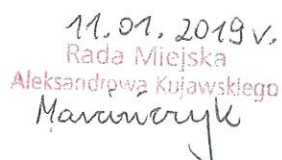 11.01.2019r.
Rada Miejska
Aleksandrowa Kujawskiego